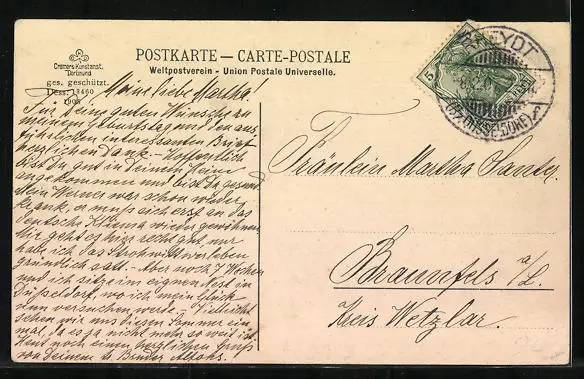 POSTKARTE — CARTE-POSTALE
Weltpostverein - Union Postale Universelle.
Cramers Kunstanst.
Dortmund
ges. geschützt.
Dess. 18460
1908
Meine liebe Martha!
Für Deine guten Wünsche zu
meinem Geburtstag und den aus-
führlichen interessanten Brief
herzlichen Dank. - Hoffentlich
bist Du gut in Deinem Heime
angekommen und bist Du gesund.
Dein Werner war schon wieder
krank, er muß sich erst an das
deutsche Klima wieder gewöhnen.
Mir geht es hier recht gut, nur
habe ich das Strohwitwerleben
gründlich satt. - Aber noch 7 Wochen
und ich sitze im eignen Nest in
Düsseldorf, wo ich mein Glück
nun versuchen werde. - Vielleicht
sehen wir uns diesen Sommer ein-
mal, da es ja nicht mehr so weit ist.
Heut noch einen herzlichen Gruß
von Deinem Bruder
5
RHEYDT
(BZ. DÜSSELDORF)
Fräulein Martha
Braunfels a/L.
Kreis Wetzlar.